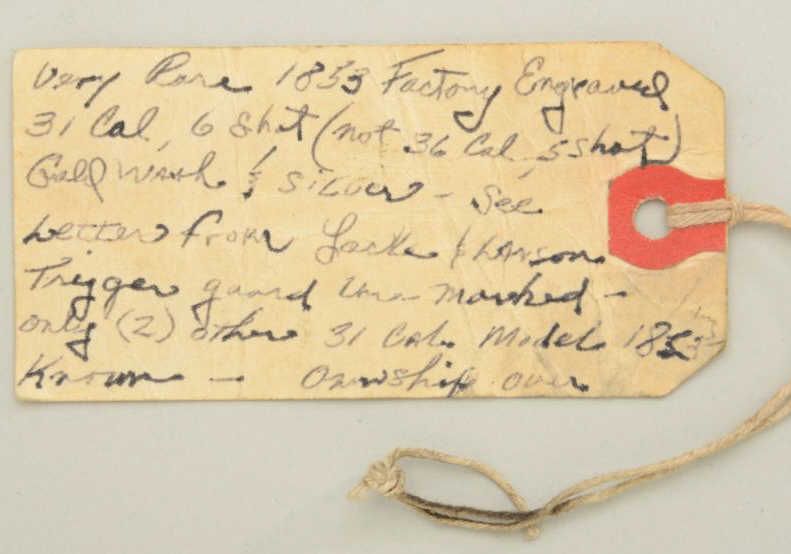 Very Rare 1853 Factory Engraved
31 Cal, 6 Shot (not 36 Cal, 5 shot)
Gold Wash & Silver - See
Letter from Larson
Trigger guard un-marked -
only (2) other 31 Cal. Model 1853
Known - Ownship over